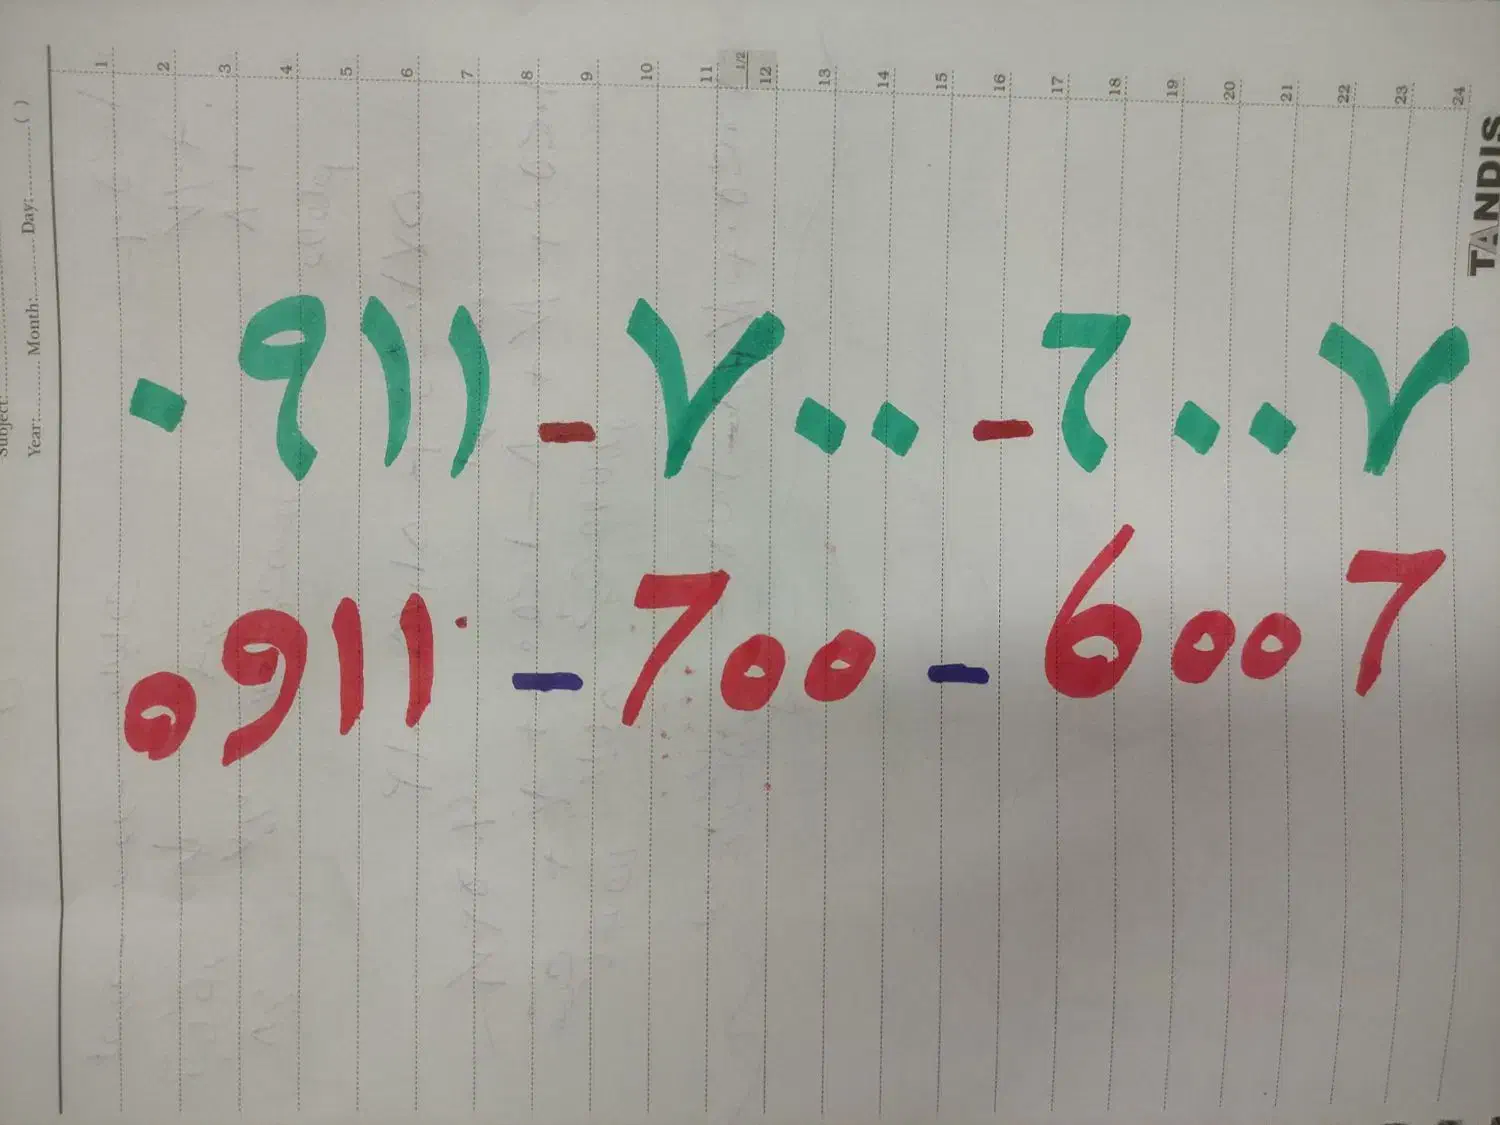 ۰۹۱۱-۷۰۰-۶۰۰۷
0911-700-6007
1
2
3
4
5
6
7
8
9
10
11
1/2
12
13
14
15
16
17
18
19
20
21
22
23
24
Subject:
Year:........ Month:............. Day:............( )
TANDIS